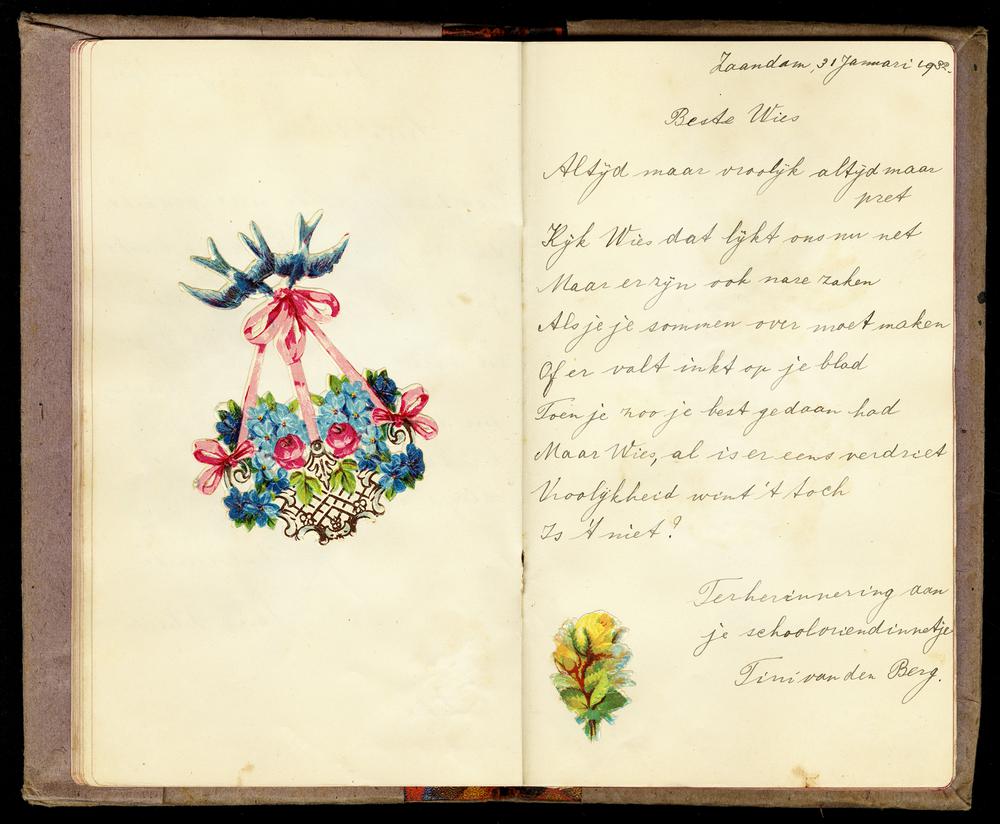 Zaandam, 31 Januari 1932.
Beste Wies
Altijd maar vroolijk altijd maar
pret
Kijk Wies dat lijkt ons nu net
Maar er zijn ook nare zaken
Als je je sommen over moet maken
Of er valt inkt op je blad
Toen je zoo je best gedaan had
Maar Wies, al is er eens verdriet
Vroolijkheid wint 't toch
Is 't niet?
Ter herinnering aan
je schoolvriendinnetje
Tini van den Berg.